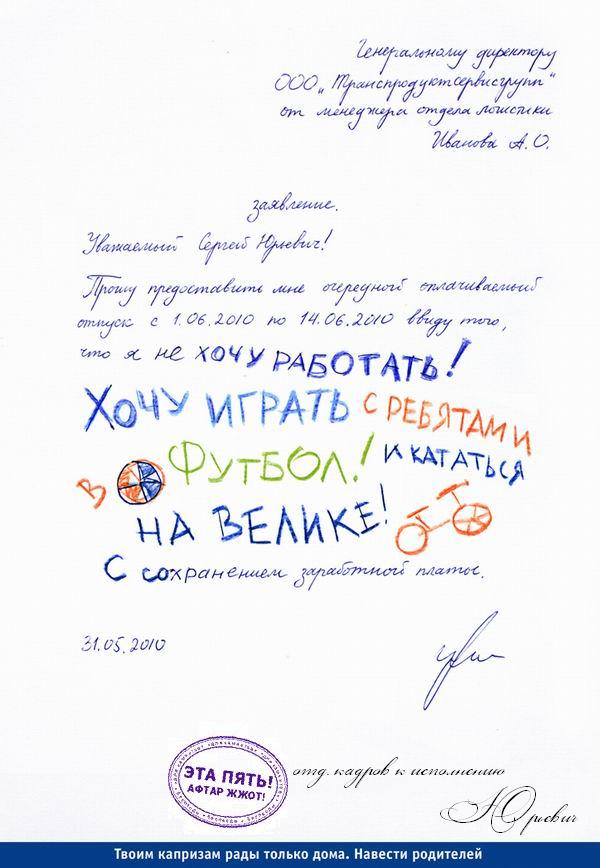 Генеральному директору
ООО „Транспродуктсервисгрупп"
от менеджера отдела логистики
Иванова А.О.
заявление.
Уважаемый Сергей Юрьевич!
Прошу предоставить мне очередной оплачиваемый
отпуск с 1.06.2010 по 14.06.2010 ввиду того,
что я не ХОЧУ РАБОТАТЬ!
ХОЧУ ИГРАТЬ С РЕБЯТАМИ
В ФУТБОЛ! И КАТАТЬСЯ
НА ВЕЛИКЕ!
С сохранением заработной платы.
31.05.2010
ЭТА ПЯТЬ!
АФТАР ЖЖОТ!
отд. кадров к исполнению
Юрьевич
Твоим капризам рады только дома. Навести родителей